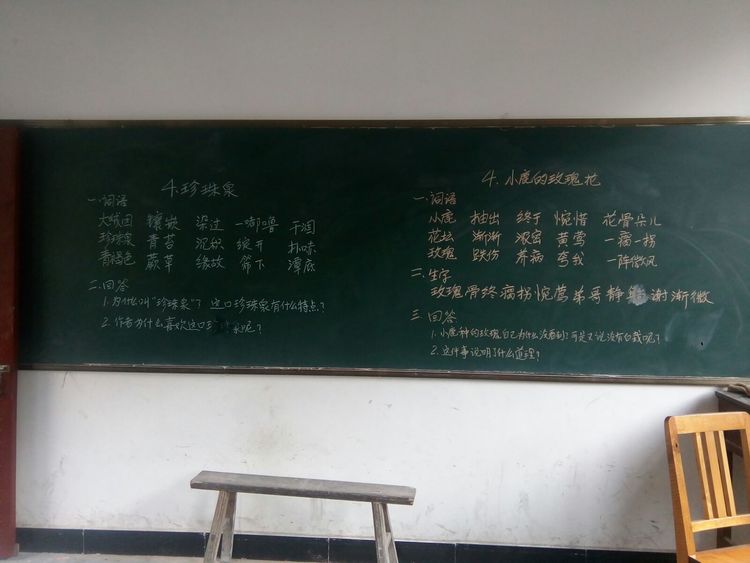 4.珍珠泉
一.词语
大绒团 镶嵌 染过 一嘟噜 干涸
珍珠泉 青苔 沉积 绽开 扑哧
青褐色 蕨草 缘故 筛下 潭底
二.回答
1.为什么叫“珍珠泉”？这口珍珠泉有什么特点？
2.作者为什么喜欢这口珍 泉呢？
4.小鹿的玫瑰花
一.词语
小鹿 抽出 终于 惋惜 花骨朵儿
花坛 渐渐 浓密 黄莺 一瘸一拐
玫瑰 跌伤 养病 夸我 一阵微风
二.生字
玫瑰骨终瘸拐惋莺弟哥静 谢渐微
三.回答
1.小鹿种的玫瑰,自己为什么没看到？可是又说没有白栽呢？
2.这件事说明了什么道理？